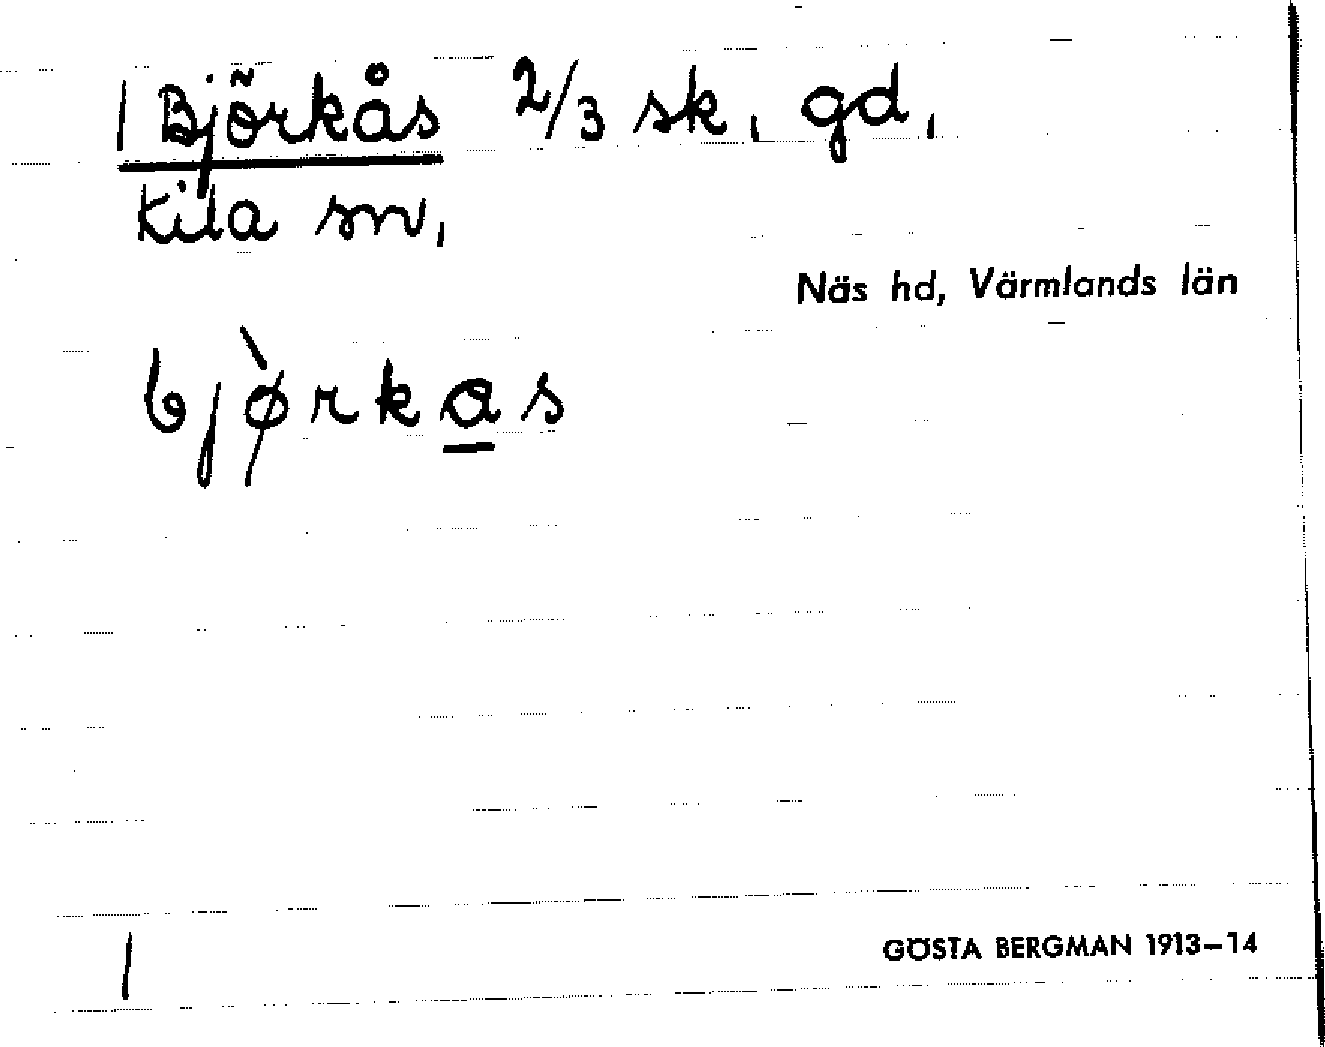 1 Björkås 2/3 sk, gd,
Kila sn,
Näs hd, Värmlands län
bjø̀rka̲s
GÖSTA BERGMAN 1913–14